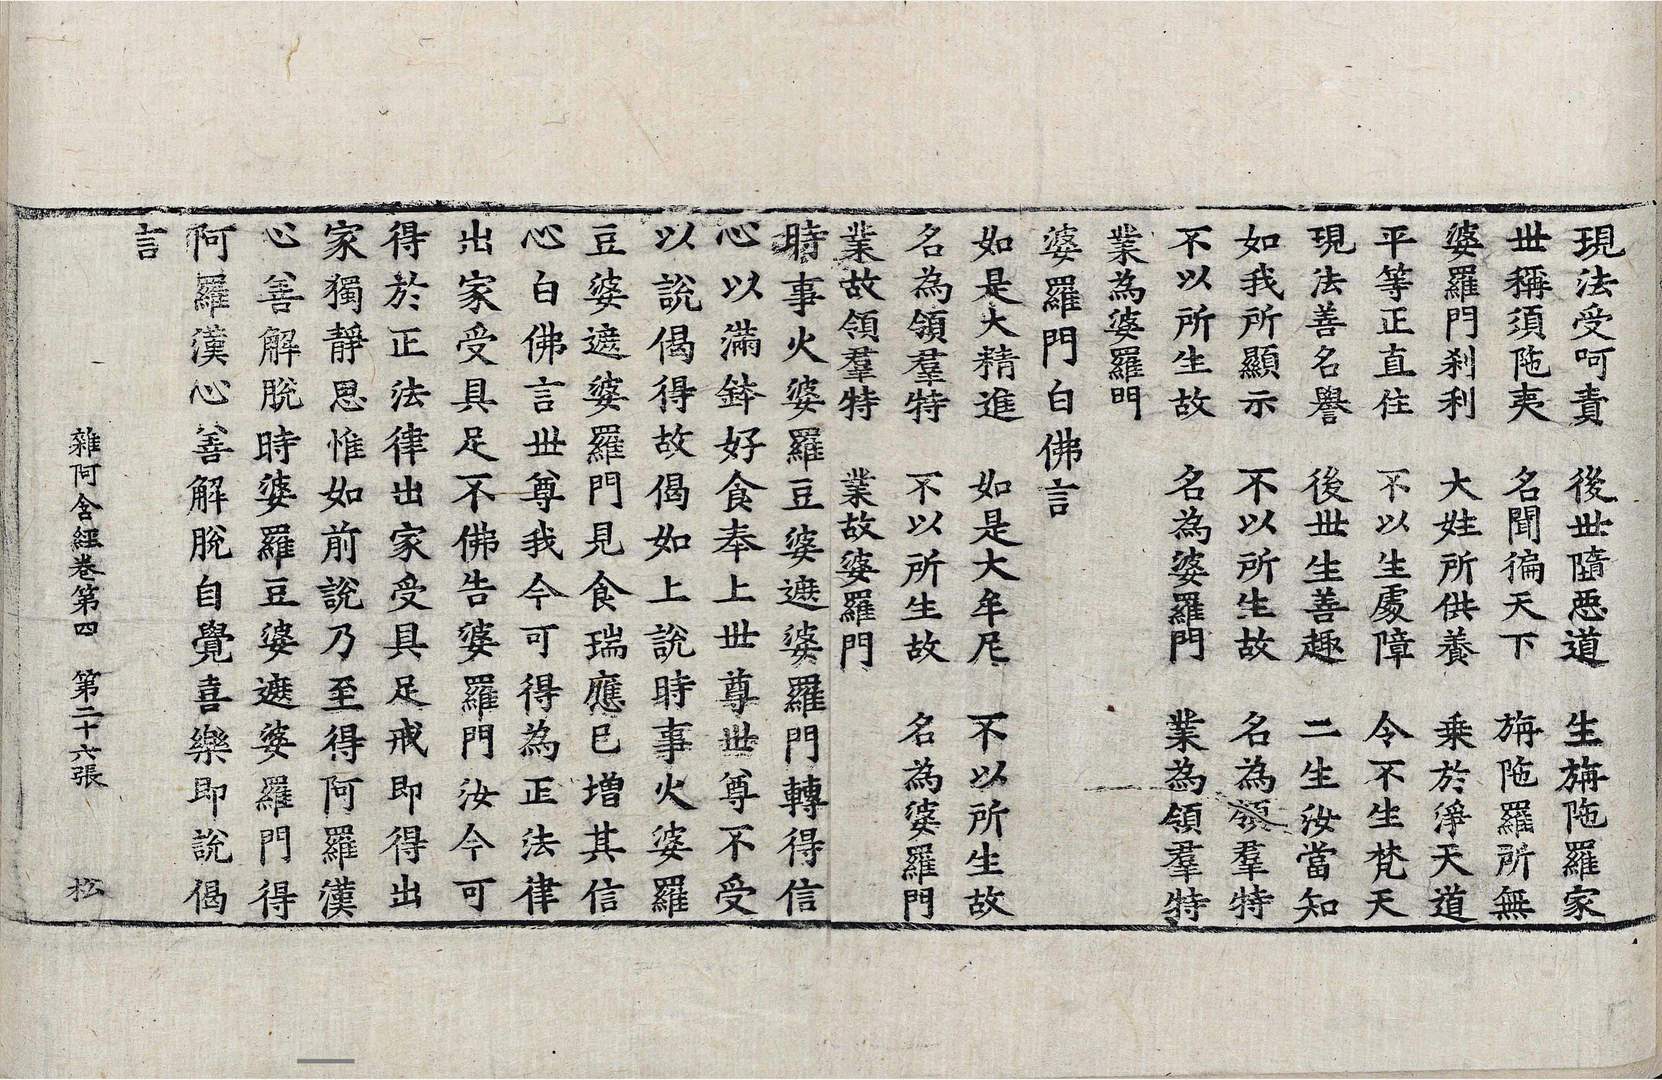 現法受呵責　後世墮惡道　生旃陁羅家
世稱須陁夷　名聞徧天下　旃陁羅所無
婆羅門刹利　大姓所供養　乗於淨天道
平等正直住　不以生處障　令不生梵天
現法善名譽　後世生善趣　二生汝當知
如我所顯示　不以所生故　名為領羣特
不以所生故　名為婆羅門　業為領羣特
業為婆羅門
婆羅門白佛言
如是大精進　如是大牟尼　不以所生故
名為領羣特　不以所生故　名為婆羅門
業故領羣特　業故婆羅門
時事火婆羅豆婆遮婆羅門轉得信
心以滿鉢好食奉上世尊世尊不受
以說偈得故偈如上說時事火婆羅
豆婆遮婆羅門見食瑞應已增其信
心白佛言世尊我今可得為正法律
出家受具足不佛告婆羅門汝今可
得於正法律出家受具足戒即得出
家獨靜思惟如前說乃至得阿羅漢
心善解脫時婆羅豆婆遮婆羅門得
阿羅漢心善解脫自覺喜樂即說偈
言
雜阿含經卷第四　第二十六張　松